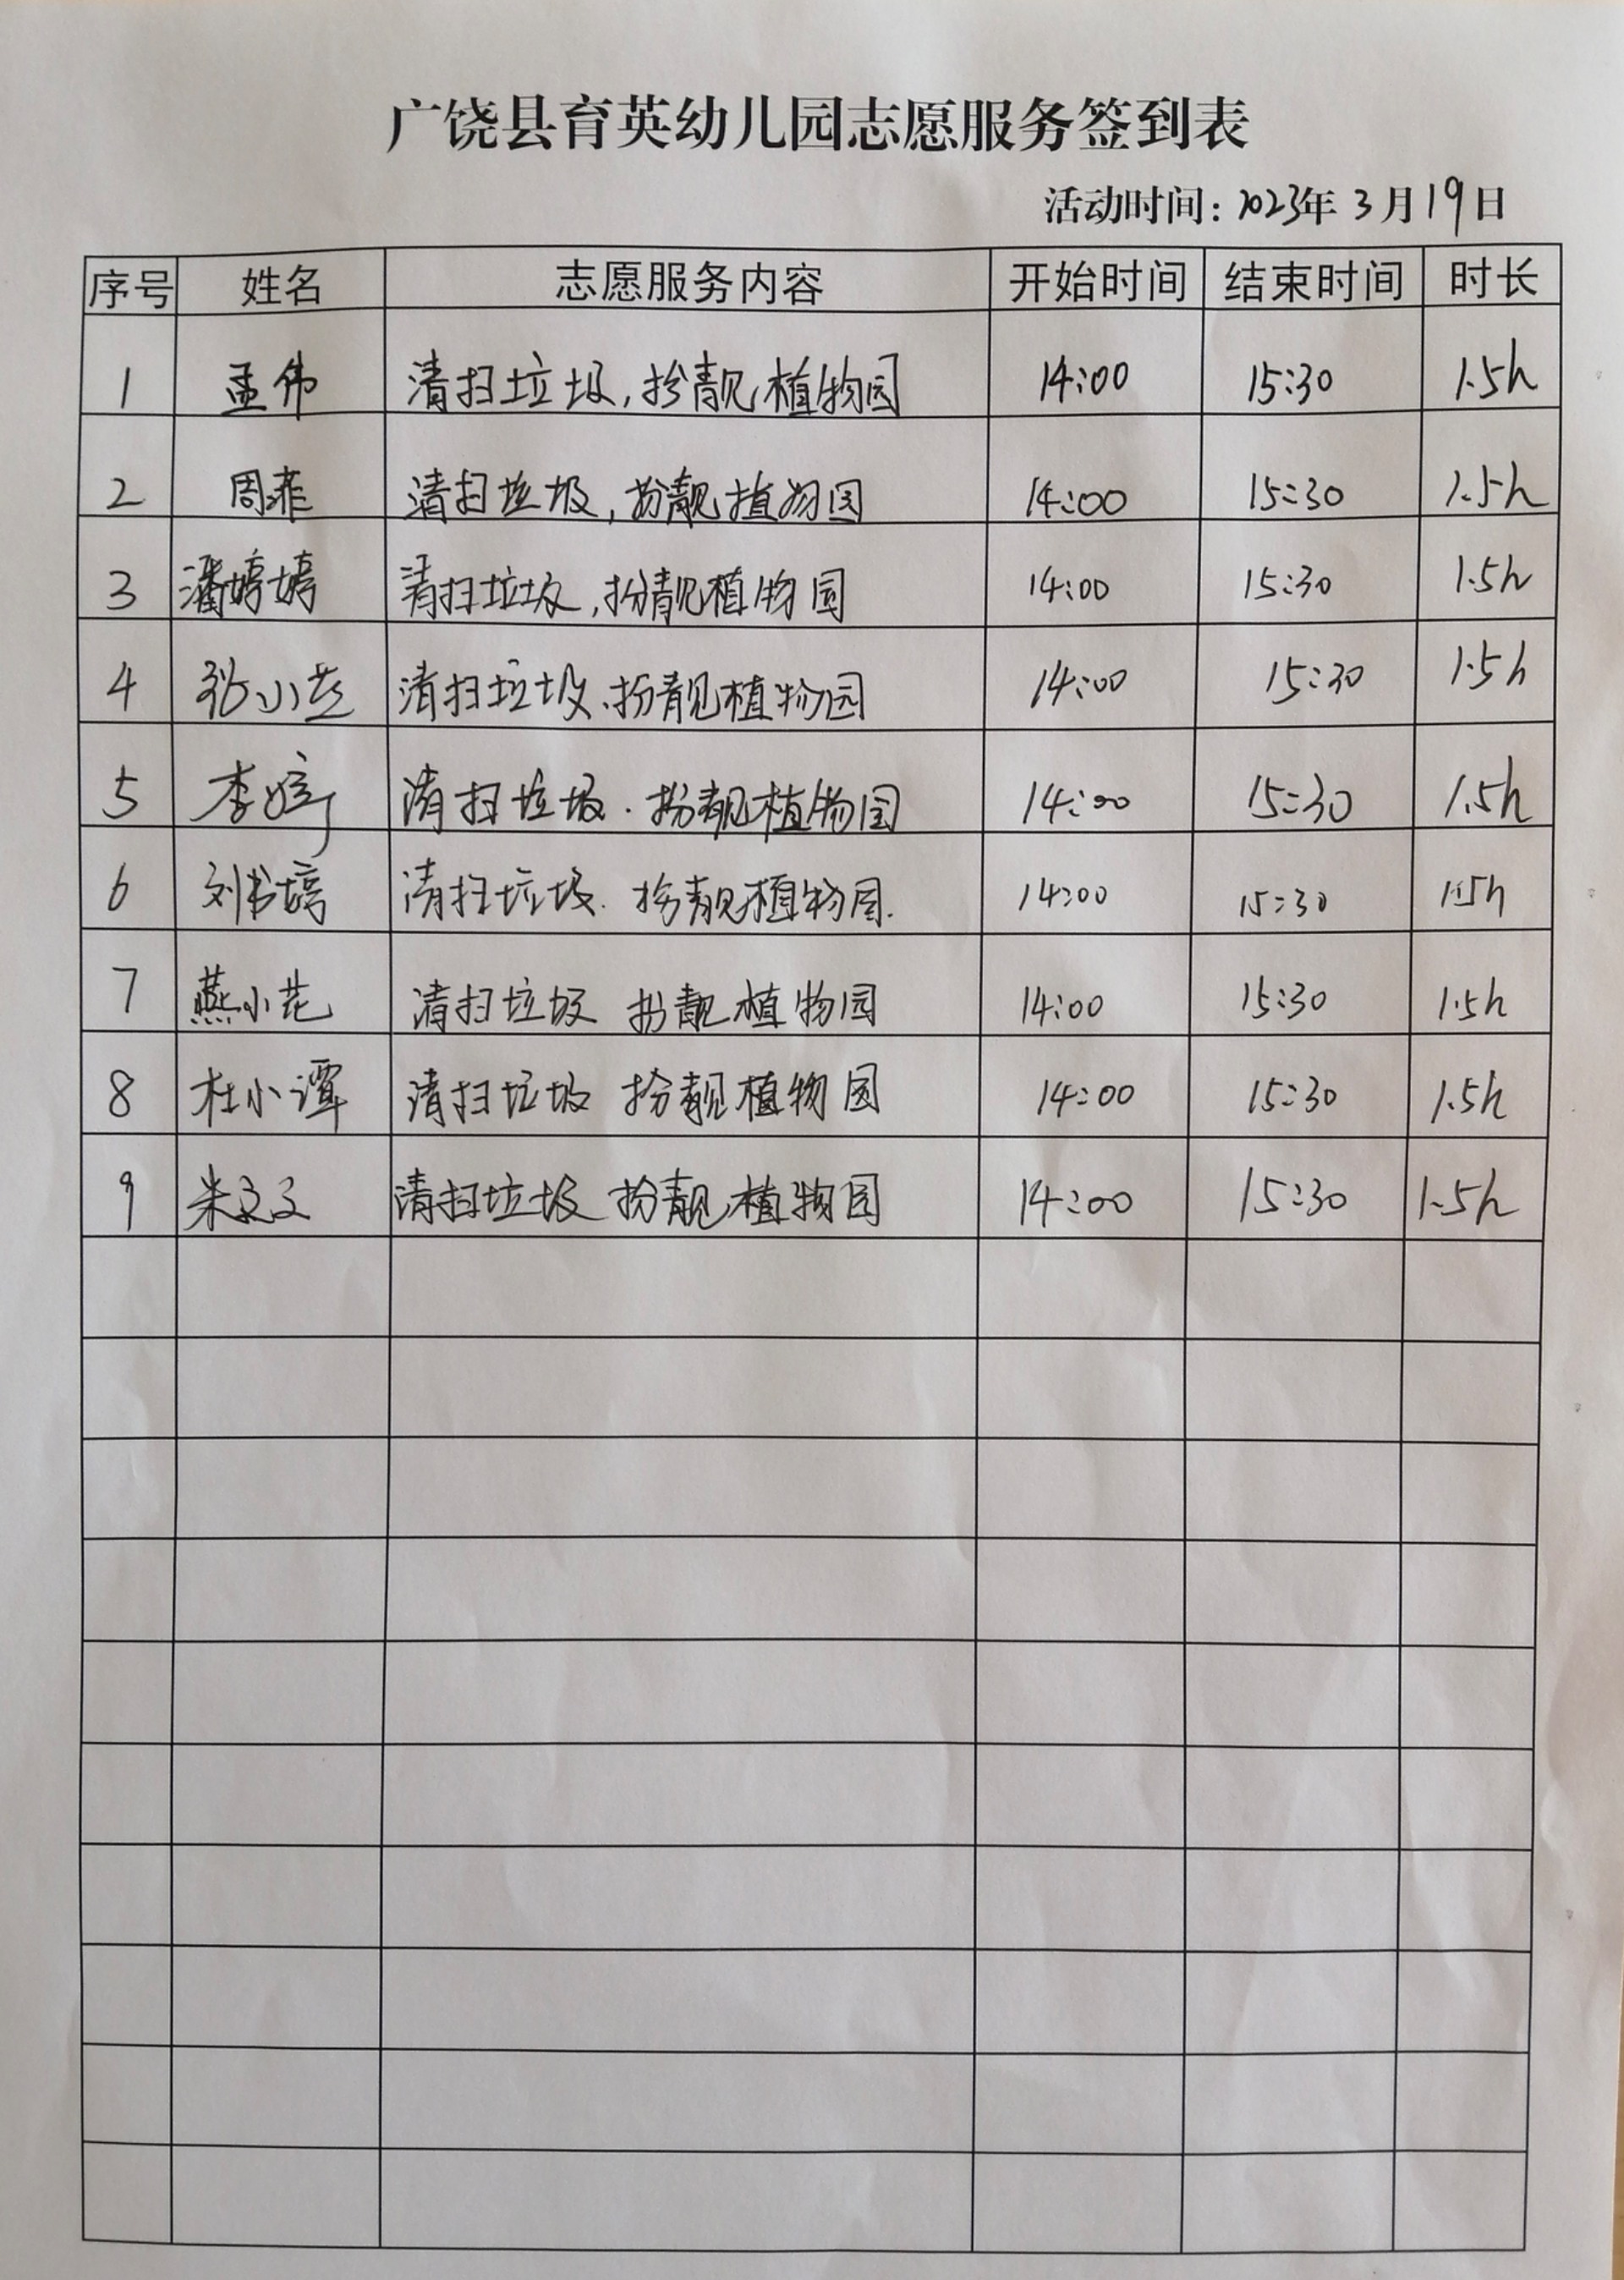 广饶县育英幼儿园志愿服务签到表
活动时间：2023年3月19日
序号 姓名 志愿服务内容 开始时间 结束时间 时长
1 孟伟 清扫垃圾,扮靓植物园 14:00 15:30 1.5h
2 周菲 清扫垃圾,扮靓植物园 14:00 15:30 1.5h
3 潘婷婷 清扫垃圾,扮靓植物园 14:00 15:30 1.5h
4 张小芝 清扫垃圾、扮靓植物园 14:00 15:30 1.5h
5 李婷 清扫垃圾.扮靓植物园 14:00 15:30 1.5h
6 刘书婷 清扫垃圾.扮靓植物园. 14:00 15:30 1.5h
7 燕小花 清扫垃圾 扮靓植物园 14:00 15:30 1.5h
8 杜小潭 清扫垃圾 扮靓植物园 14:00 15:30 1.5h
9 朱文文 清扫垃圾 扮靓植物园 14:00 15:30 1.5h